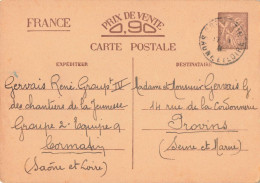 FRANCE
PRIX DE VENTE
0,90
CARTE POSTALE
EXPÉDITEUR
DESTINATAIRE
Gervais René Groupt IV
des chantiers de la Jeunesse
Groupe 2 - Equipe 9
Cormatin
(Saône et Loire)
Madame et Monsieur Gervais G
14 rue de la Cordonnerie
Provins
(Seine et Marne)